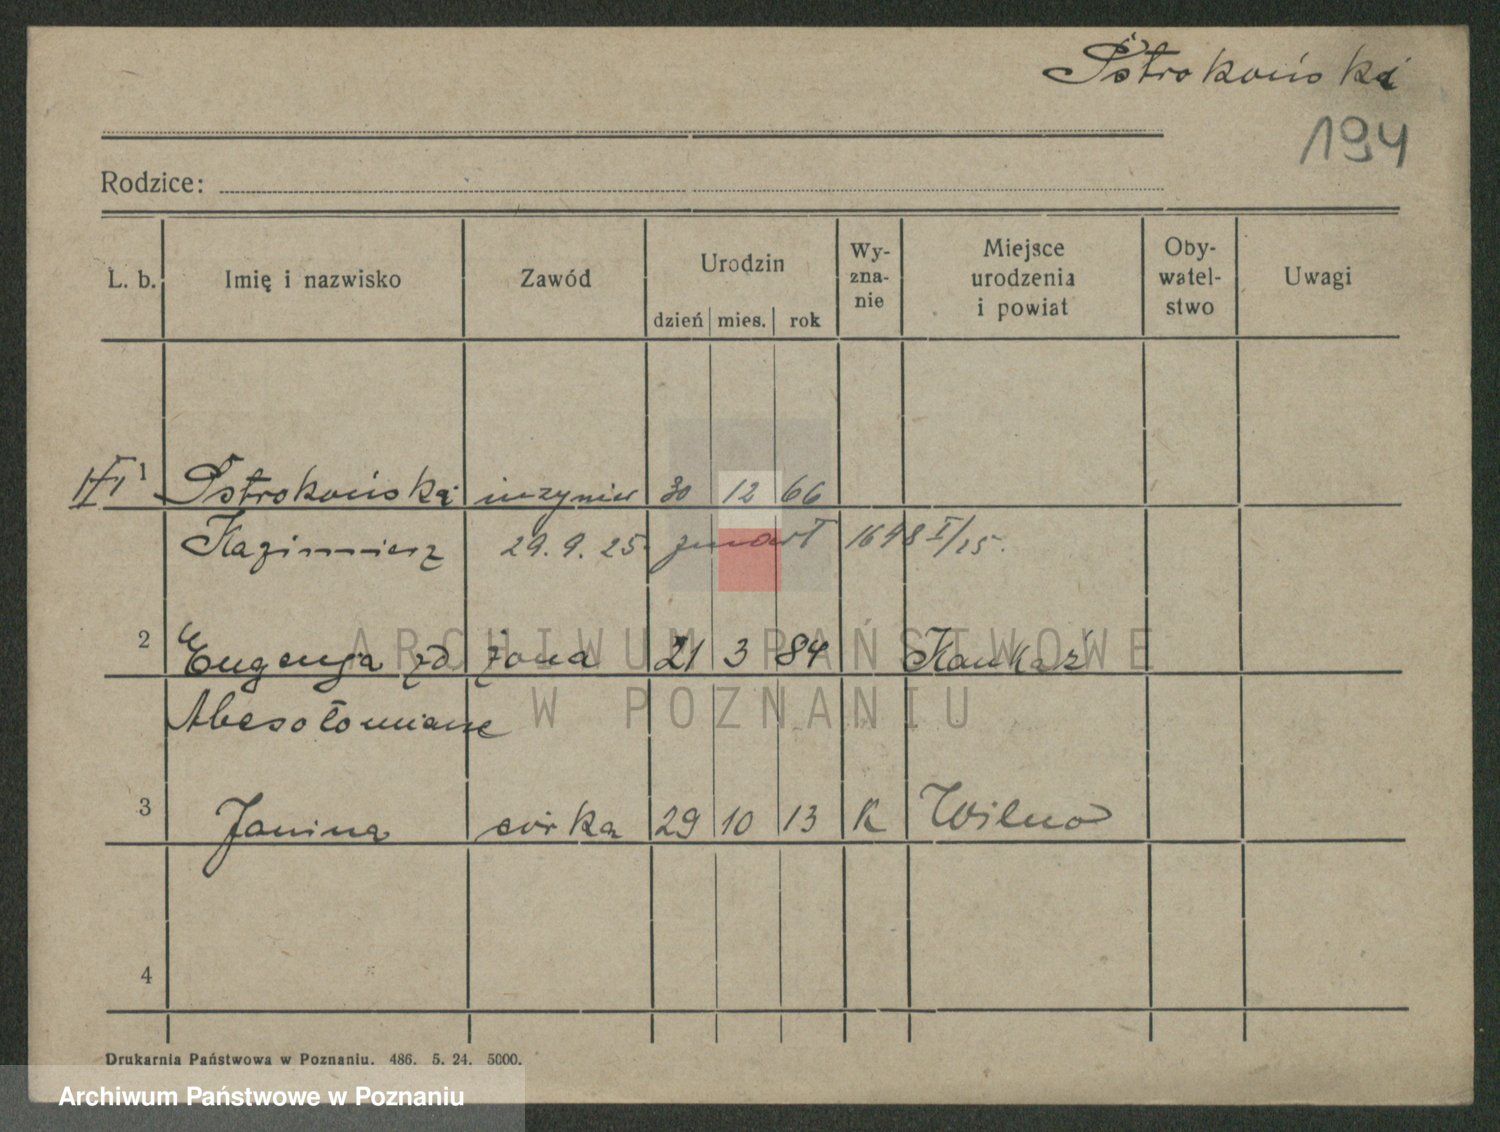 Pstrokoński
194
Rodzice:
L. b. Imię i nazwisko Zawód Urodzin dzień mies. rok Wy-zna-nie Miejsce urodzenia i powiat Oby-watel-stwo Uwagi
1 Pstrokoński inżynier 30 12 66
Kazimierz 29. 9. 25. zmarł 1698 I/25.
2 Eugenja zd żona 21 3 84 Kaukaź
3 Janina córka 29 10 13 K Wilno
4
Drukarnia Państwowa w Poznaniu. 486. 5. 24. 5000.
ARCHIWUM PAŃSTWOWE
W POZNANIU
Archiwum Państwowe w Poznaniu